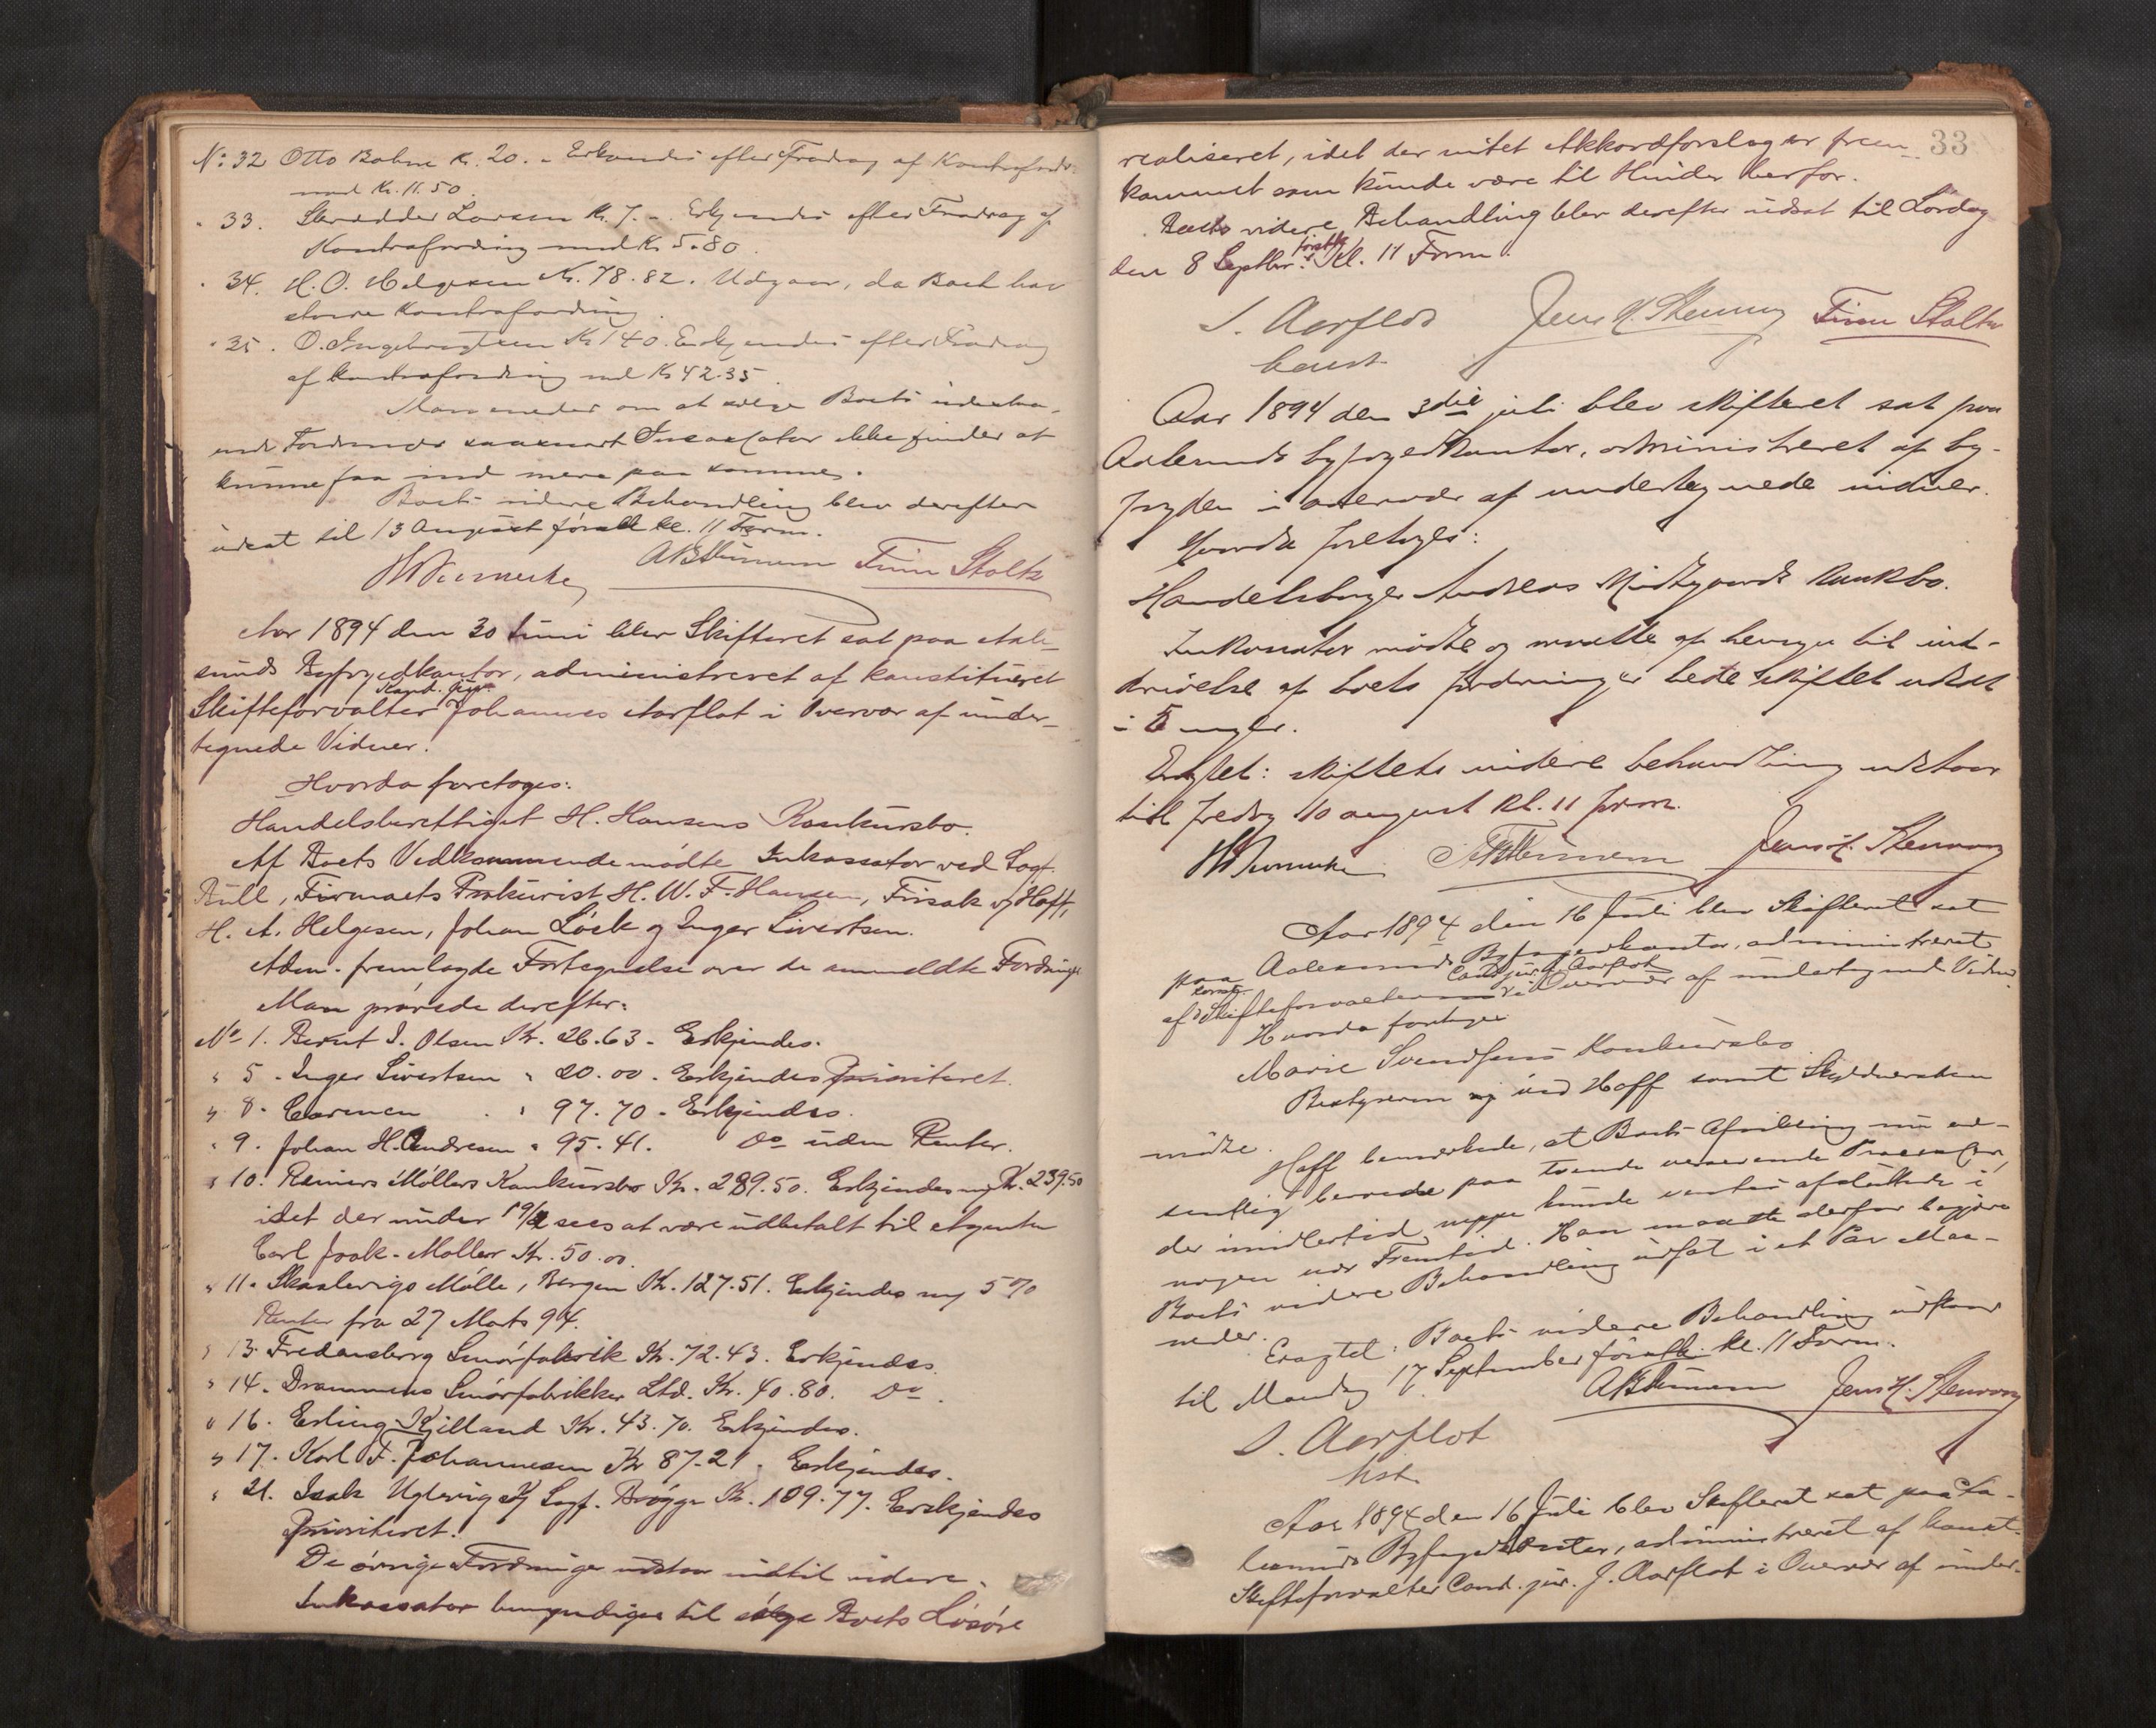 No: 32 Otto Bohne Kr. 20. - Erkjendes efter Fradrag af Kontrafordr.
med Kr. 11.50.
" 33. Skrædder Larsen Kr. 7. - Erkjendes efter Fradrag af
Kontrafordring med Kr. 5.80.
" 34. H. O. Helgesen Kr. 78.82. Udgaar, da Boet har
større Kontrafordring.
" 35. O. Ingebrigtsen Kr. 140. Erkjendes efter Fradrag
af Kontrafordring med Kr 42.35.
om at sælge Boets udestaa-
ende Fordringer saasnart Incassator ikke finder at
kunne faa ind mere paa samme.
Boets videre Behandling blev derefter
udsat til 13 August førstk. kl. 11 Form.
Finn Stoltz
Aar 1894 den 30 Juni blev Skifteret sat paa Aale-
sunds Byfogedkontor, administreret af konstitueret
Skifteforvalter Kand. jur. Johannes Aarflot i Overvær af under-
tegnede Vidner.
Hvorda foretoges:
Handelsberettiget H. Hansens Konkursbo.
Af Boets Vedkommende mødte Inkassator ved Sagf.
Bull, Firmaets Prokurist H. W. F. Hansen, Firsak og Hoff,
H. A. Helgesen, Johan Løek og Inger Sivertsen.
Adm. fremlagde Fortegnelse over de anmeldte Fordringer
Man prøvede derefter:
No 1. Bernt I. Olsen Kr. 26.63 - Erkjendes.
" 5. Inger Sivertsen " 20.00 - Erkjendes prioriteret.
" 8. Carmen " 97.70 - Erkjendes.
" 9. Johan H. Andresen " 95.41. Do uden Renter.
" 10. Reiners Møllers Konkursbo Kr. 289.50. Erkjendes m/ Kr. 239.50
idet der under 19/2 sees at være udbetalt til Agenten
Carl Joak. Møller Kr. 50.00.
" 11. Skaalevigs Mølle, Bergen Kr. 127.51. Erkjendes m/ 5%
Renter fra 27 Marts 94.
" 13. Fredensborg Smørfabrik Kr. 72.43. Erkjendes.
" 14. Drammens Smørfabrikker Ltd. Kr. 40.80. Do.
" 16. Erling Kjelland Kr. 43.70. Erkjendes.
" 17. Karl F. Johannesen Kr 87.21. Erkjendes.
" 21. Isak Uglevig v/ Sagf. Brøgge Kr. 109.77. Erkjendes
Prioriteret.
De øvrige Fordringer udstaar indtil videre.
Inkassator bemyndiges til sælge Boets Løsøre
33
realiseret, idet der intet Akkordforslag er frem-
kommet som kunde være til Hinder herfor.
Boets videre Behandling blev derefter udsat til Lørdag
den 8 Septbr. førstk. Kl. 11 Form.
J. Aarflot Jens H. Stenvog Finn Stoltz
const
Aar 1894 den 3die juli blev skifteret sat paa
Aalesunds byfogedkontor, administreret af by-
fogden i overvær af undertegnede vidner.
Hvorda foretoges:
Handelsborger Andreas Midtgaards konkbo.
Inkassator mødte og maatte af hensyn til ind-
drivelse af boets fordringer bede skiftet udsat
i 5 uger.
Eragtet: skiftets videre behandling udstaar
til fredag 10 august kl. 11 form.
Jens H. Stenvog
Aar 1894 den 16 Juli blev Skifteret sat
paa Aalesunds Byfogedkontor, administreret
af const. Skifteforvalter Cand. jur. J. Aarflot i Overvær af undertegnede Vidner.
Hvorda foretoges
Marie Svendsens Konkursbo
Bestyreren ved Hoff samt Skyldnersken
mødte.
Hoff bemærkede, at Boets Afvikling nu ude-
berode paa tvende verserende Processer,
der imidlertid neppe kunde ventes afsluttede i
nogen nær Fremtid. Han maatte derfor begjære
Boets videre Behandling udsat i et Par Maa-
neder.
Eragtet: Boets videre Behandling udstaar
til Mandag 17 September førstk. kl. 11 Form.
Jens H. Stenvog
J. Aarflot
kst.
Aar 1894 den 16 Juli blev Skifteret sat paa Aa-
lesunds Byfogedkontor, administreret af const.
Skifteforvalter Cand. jur. J. Aarflot i Overvær af under-